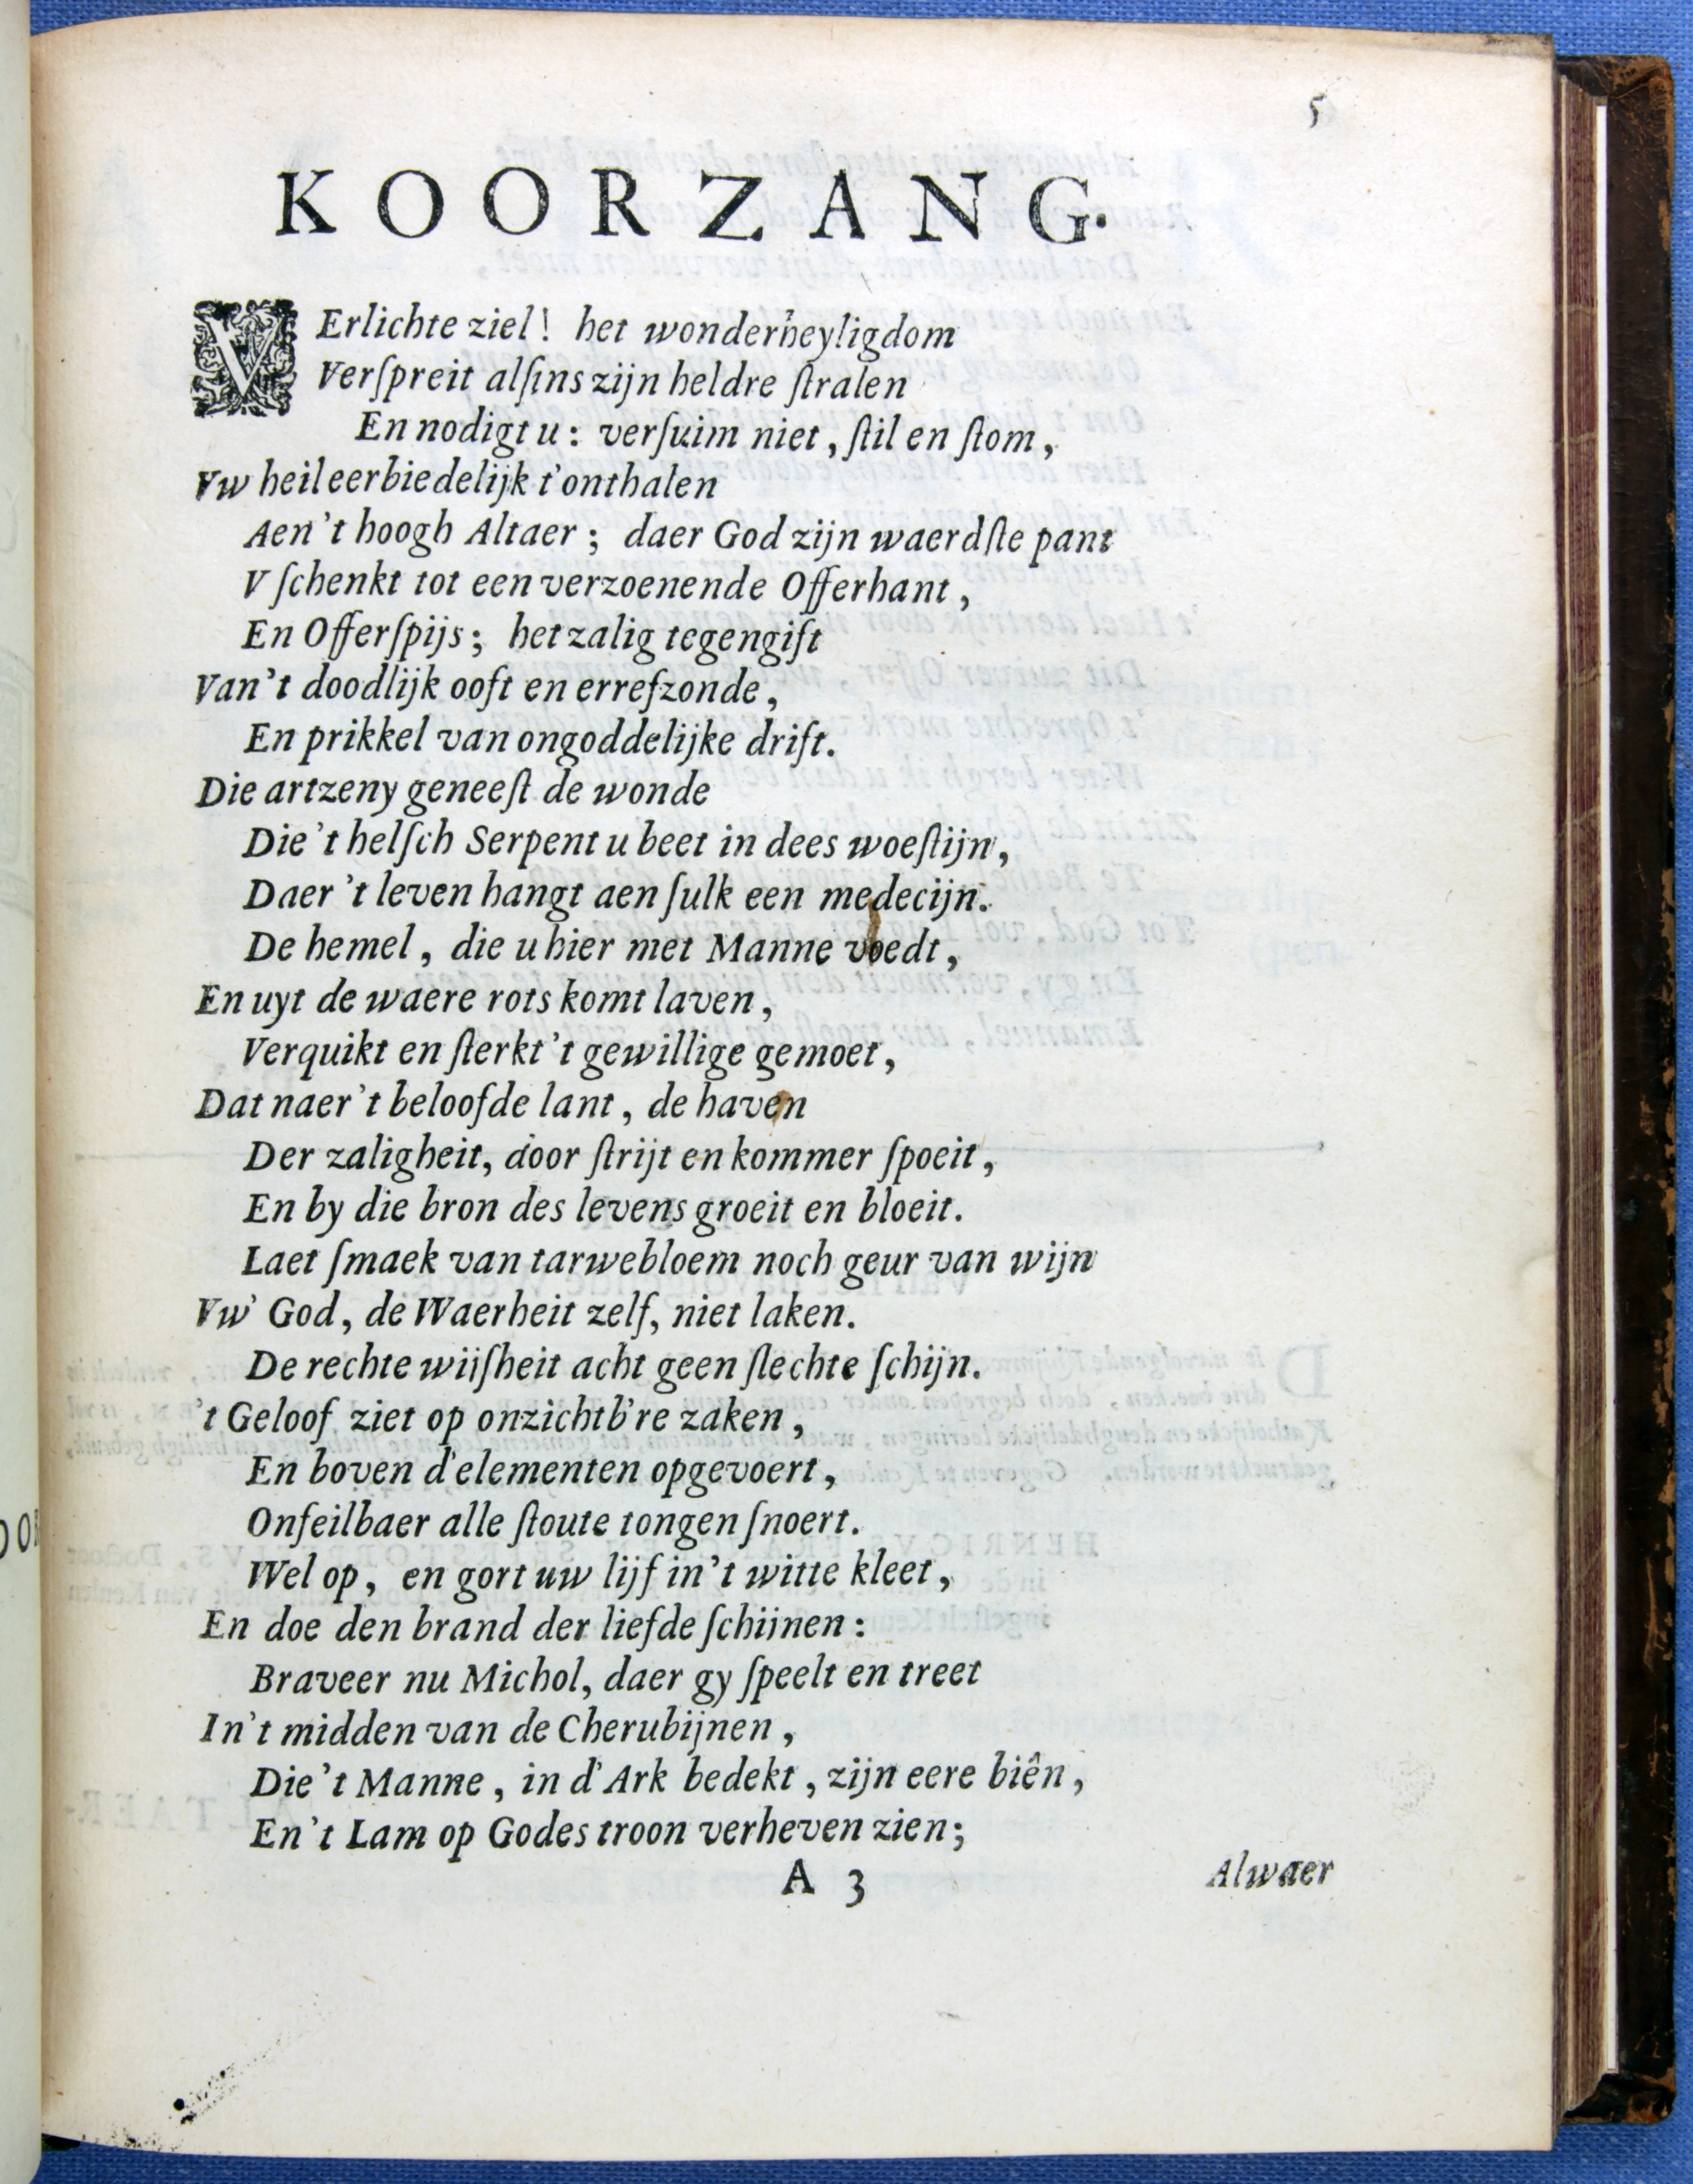 5
KOORZANG.
VErlichte ziel! het wonderheyligdom
Verſpreit alſins zijn heldre ſtralen
En nodigt u: verſuim niet, ſtil en ſtom,
Vw heil eerbiedelijk t'onthalen
Aen 't hoogh Altaer; daer God zijn waerdſte pant
V ſchenkt tot een verzoenende Offerhant,
En Offerſpijs; het zalig tegengift
Van 't doodlijk ooft en errefzonde,
En prikkel van ongoddelijke drift.
Die artzeny geneeſt de wonde
Die 't helſch Serpent u beet in dees woeſtijn,
Daer 't leven hangt aen ſulk een medecijn.
De hemel, die u hier met Manne voedt,
En uyt de waere rots komt laven,
Verquikt en ſterkt 't gewillige gemoet,
Dat naer 't beloofde lant, de haven
Der zaligheit, door ſtrijt en kommer ſpoeit,
En by die bron des levens groeit en bloeit.
Laet ſmaek van tarwebloem noch geur van wijn
Vw' God, de Waerheit zelf, niet laken.
De rechte wijſheit acht geen ſlechte ſchijn.
't Geloof ziet op onzichtb're zaken,
En boven d'elementen opgevoert,
Onfeilbaer alle ſtoute tongen ſnoert.
Wel op, en gort uw lijf in 't witte kleet,
En doe den brand der liefde ſchijnen:
Braveer nu Michol, daer gy ſpeelt en treet
In 't midden van de Cherubijnen,
Die 't Manne, in d'Ark bedekt, zijn eere biên,
En 't Lam op Godes troon verheven zien;
A 3 Alwaer